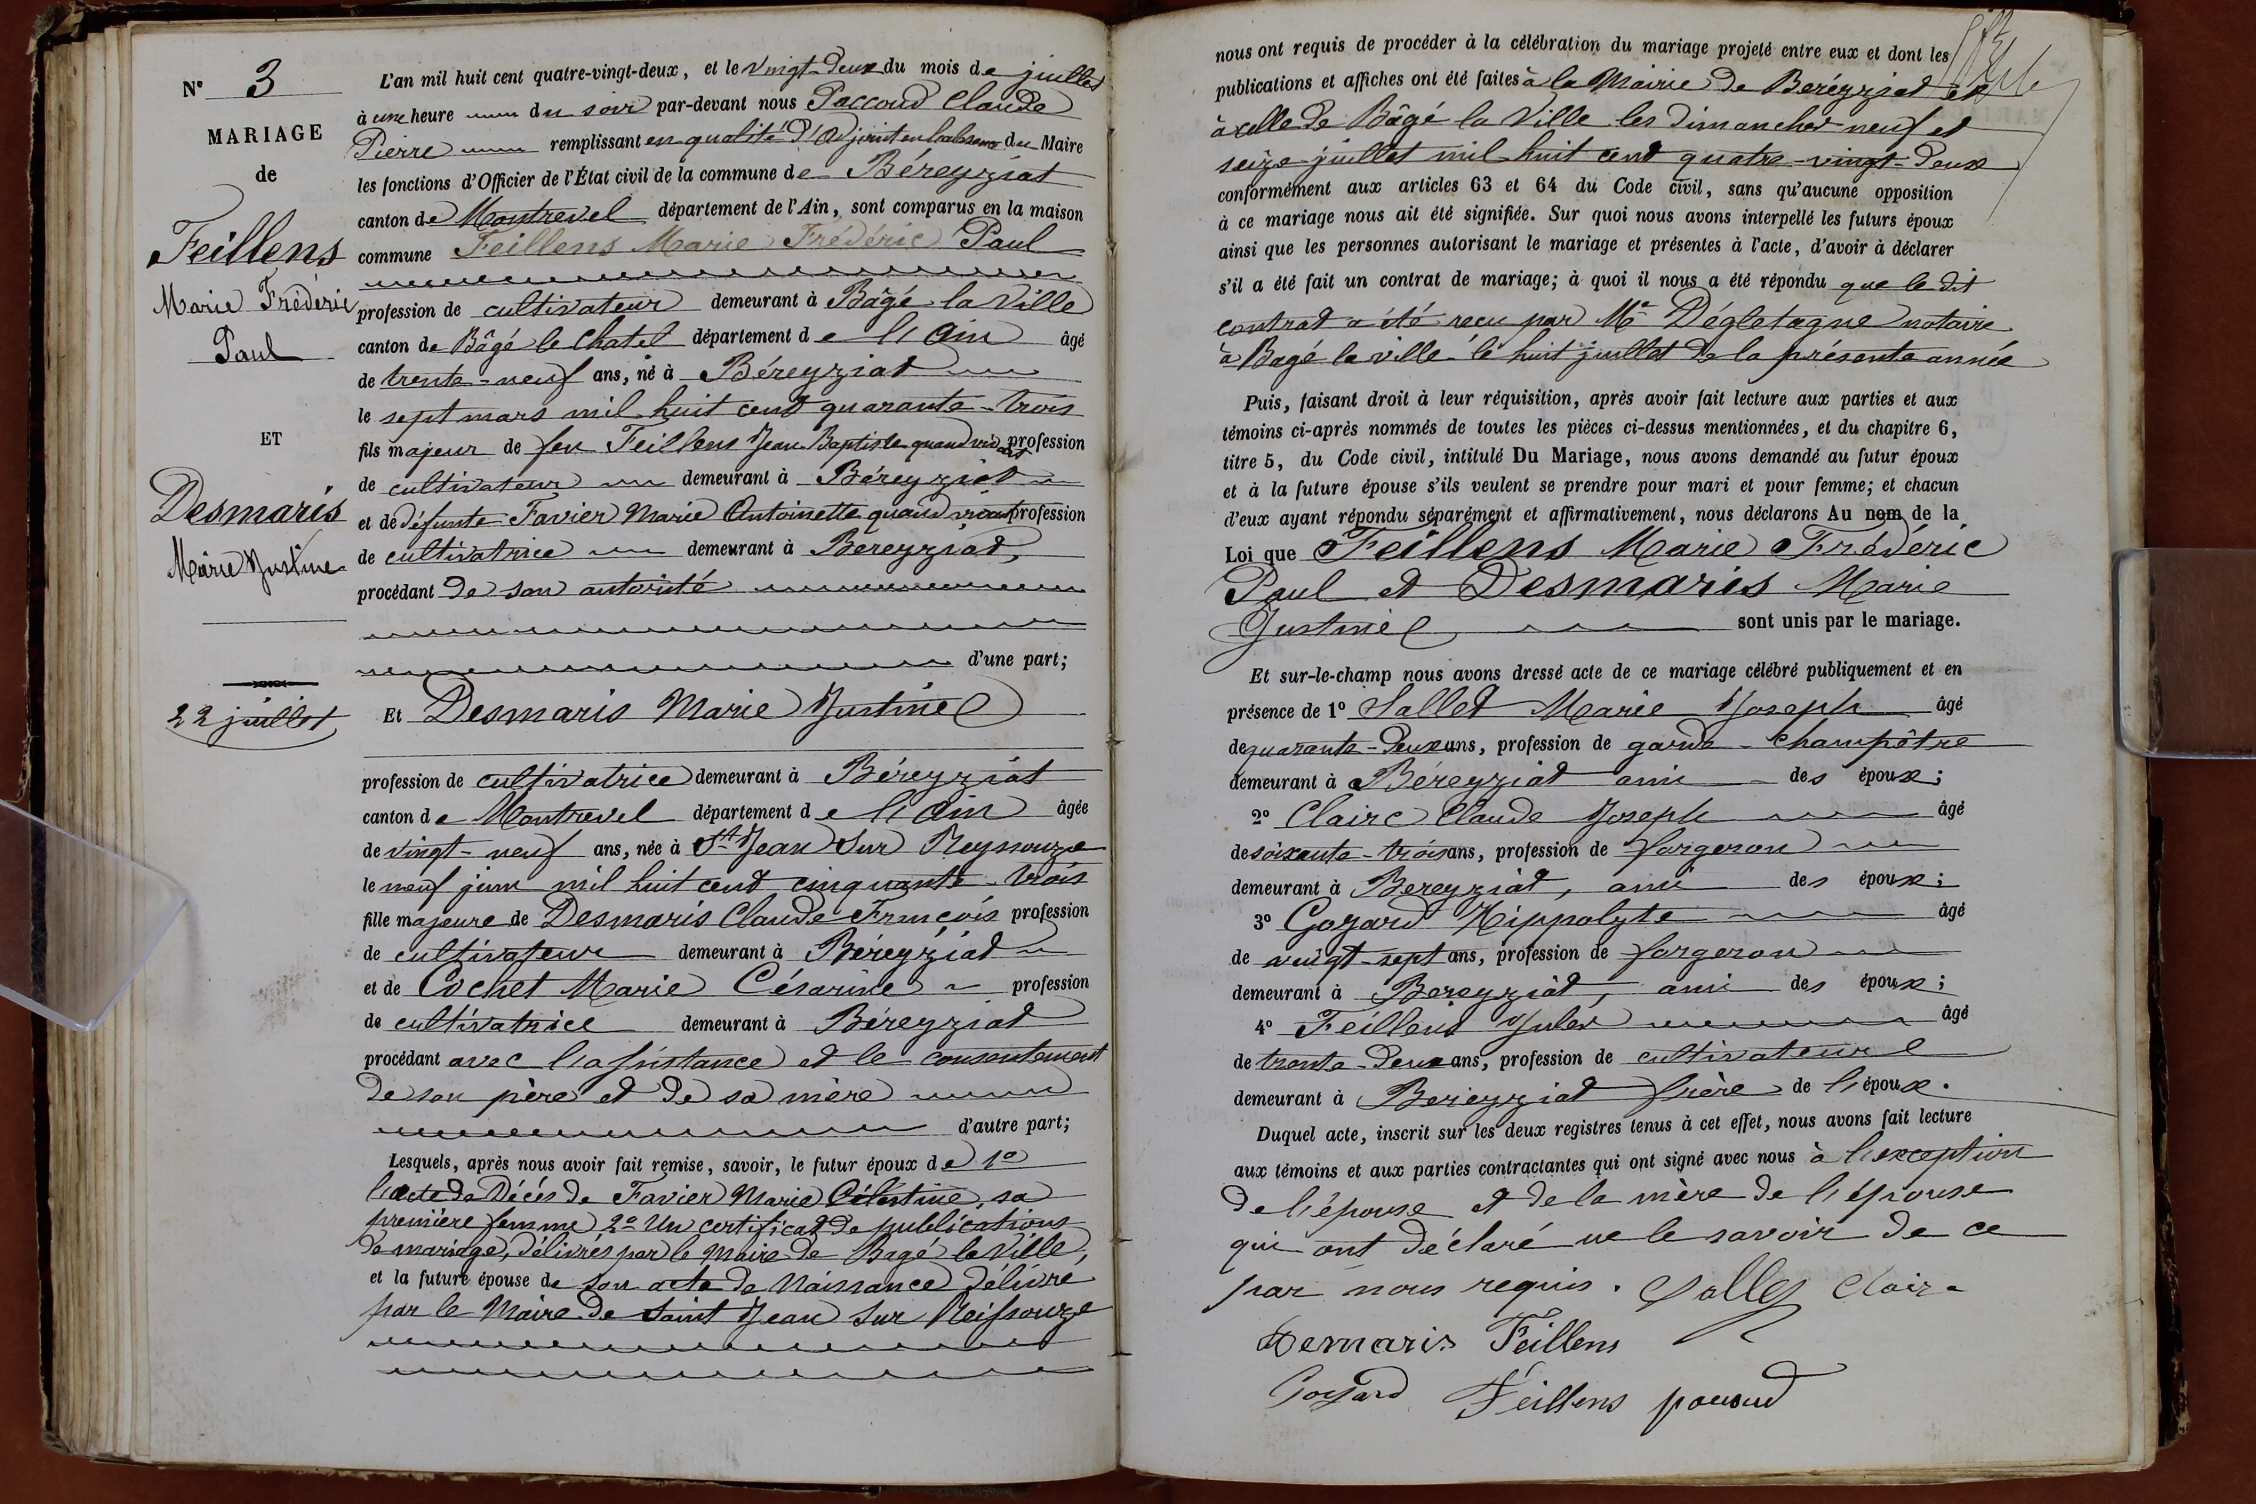 N° 3
MARIAGE
de
Feillens
Marie Frédéric
Paul
ET
Desmaris
Marie Justine
22 juillet
L'an mil huit cent quatre-vingt-deux, et le vingt-deux du mois de juillet
à une heure du soir par-devant nous Paccoud Claude
Pierre remplissant en qualité d'adjoint en l'absence du Maire
les fonctions d'Officier de l'État civil de la commune de Béreyziat
canton de Montrevel département de l'Ain, sont comparus en la maison
commune Feillens Marie Frédéric Paul
profession de cultivateur demeurant à Bâgé la Ville
canton de Bâgé le Chatel département de l'Ain âgé
de trente-neuf ans, né à Béreyziat
le sept mars mil huit cent quarante-trois
fils majeur de feu Feillens Jean Baptiste quand vivait profession
de cultivateur demeurant à Béreyziat
et de défunte Favier Marie Antoinette quand vivait profession
de cultivatrice demeurant à Bereyziat,
procédant de son autorité
d'une part;
Et Desmaris Marie Justine
profession de cultivatrice demeurant à Béreyziat
canton de Montrevel département de l'Ain âgée
de vingt-neuf ans, née à St Jean sur Reyssouze
le neuf juin mil huit cent cinquante-trois
fille majeure de Desmaris Claude François profession
de cultivateur demeurant à Béreyziat
et de Cochet Marie Césarine profession
de cultivatrice demeurant à Béreyziat
procédant avec l'assistance et le consentement
de son père et de sa mère
d'autre part;
Lesquels, après nous avoir fait remise, savoir, le futur époux de 1°
l'acte de Décés de Favier Marie Célestine, sa
première femme 2° Un certificat de publications
de mariage, délivrés par le Maire de Bagé la Ville,
et la future épouse de son acte de Naissance délivré
par le Maire de Saint Jean sur Reissouze
nous ont requis de procéder à la célébration du mariage projeté entre eux et dont les
publications et affiches ont été faites à la Mairie de Beréyziat et
à celle de Bâgé la Ville les dimanches neuf et
seize juillet mil huit cent quatre-vingt-deux
conformément aux articles 63 et 64 du Code civil, sans qu'aucune opposition
à ce mariage nous ait été signifiée. Sur quoi nous avons interpellé les futurs époux
ainsi que les personnes autorisant le mariage et présentes à l'acte, d'avoir à déclarer
s'il a été fait un contrat de mariage; à quoi il nous a été répondu que le dit
contrat a été reçu par Me Dégletagne notaire
à Bagé la ville le huit juillet de la présente année
Puis, faisant droit à leur réquisition, après avoir fait lecture aux parties et aux
témoins ci-après nommés de toutes les pièces ci-dessus mentionnées, et du chapitre 6,
titre 5, du Code civil, intitulé Du Mariage, nous avons demandé au futur époux
et à la future épouse s'ils veulent se prendre pour mari et pour femme; et chacun
d'eux ayant répondu séparément et affirmativement, nous déclarons Au nom de la
Loi que Feillens Marie Frédéric
Paul et Desmaris Marie
Justine sont unis par le mariage.
Et sur-le-champ nous avons dressé acte de ce mariage célébré publiquement et en
présence de 1° Sallet Marie Joseph âgé
de quarante-deux ans, profession de garde-champêtre
demeurant à Béreyziat ami des époux;
2° Claire Claude Joseph âgé
de soixante-trois ans, profession de forgeron
demeurant à Bereyziat, ami des époux;
3° Goyard Hippolyte âgé
de vingt-sept ans, profession de forgeron
demeurant à Bereyziat, ami des époux;
4° Feillens Jules âgé
de trente-deux ans, profession de cultivateur
demeurant à Bereyziat frère de l'époux.
Duquel acte, inscrit sur les deux registres tenus à cet effet, nous avons fait lecture
aux témoins et aux parties contractantes qui ont signé avec nous à l'exception
de l'épouse et de la mère de l'épouse
qui ont déclaré ne le savoir de ce
par nous requis. Sallet Claire
Demaris Feillens
Goyard Feillens paccoud